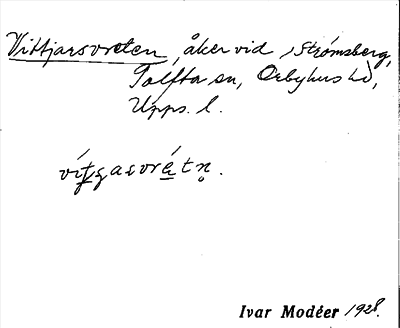 Vittjarsvreten, åker vid Strömsberg,
Tolfta sn, Örbyhus hd,
Upps. l.
vítgasvrétn.
Ivar Modéer 1928.